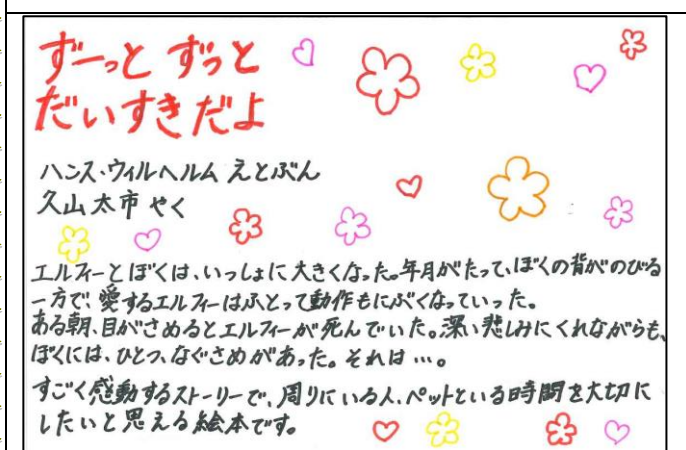 ずーっと ずっと
だいすきだよ
ハンス・ウィルヘルム えとぶん
久山太市 やく
エルフィーとぼくは、いっしょに大きくなった。年月がたって、ぼくの背がのびる
一方で、愛するエルフィーはふとって動作もにぶくなっていった。
ある朝、目がさめるとエルフィーが死んでいた。深い悲しみにくれながらも、
ぼくには、ひとつ、なぐさめがあった。それは…。
すごく感動するストーリーで、周りにいる人、ペットといる時間を大切に
したいと思える絵本です。